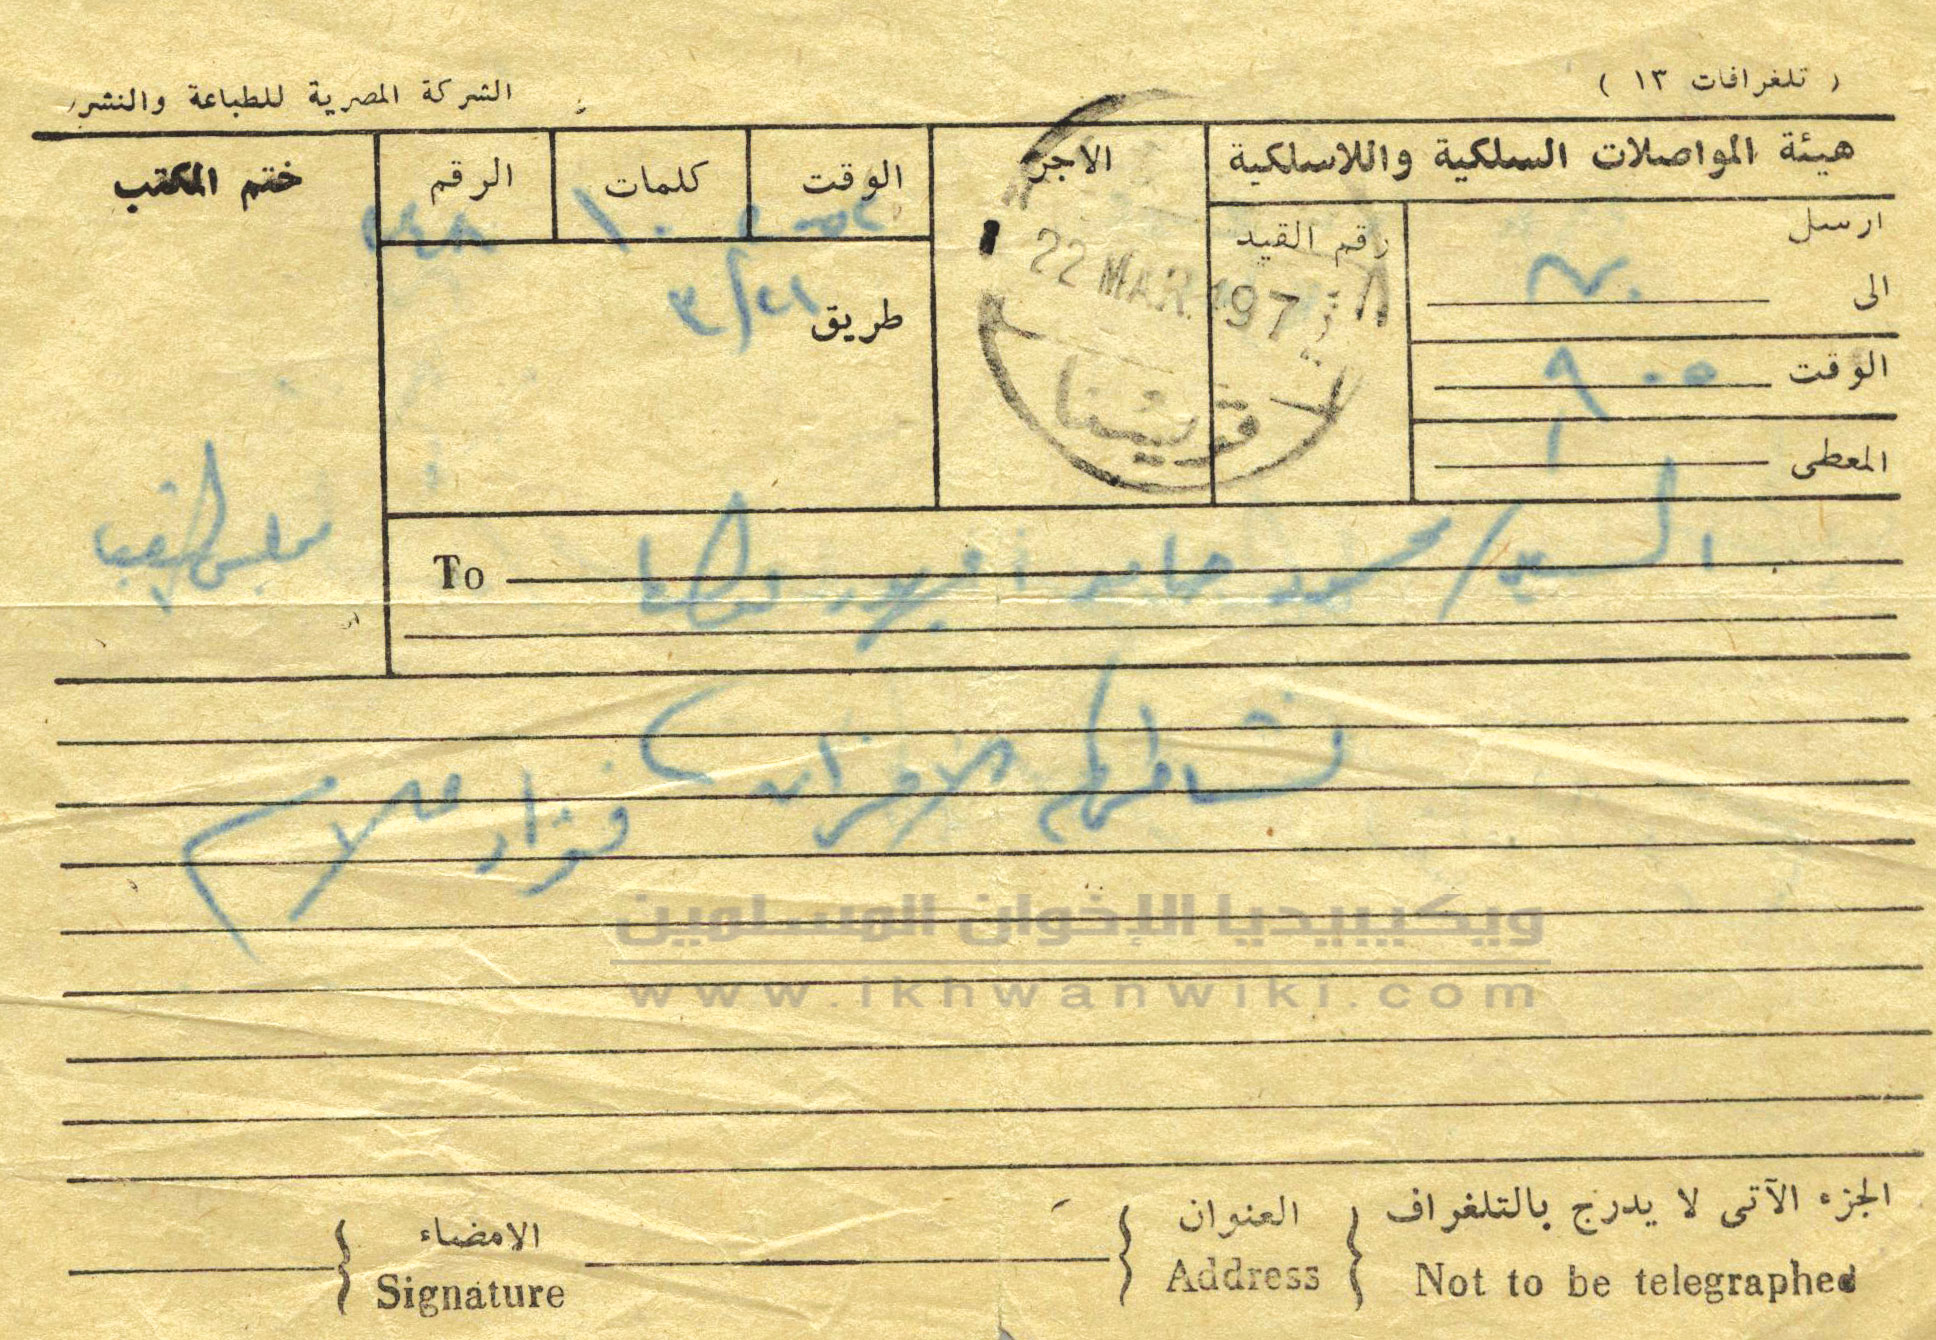 ( تلغرافات ١٣ )
الشركة المصرية للطباعة والنشر
هيئة المواصلات السلكية واللاسلكية
الاجر
الوقت
كلمات
الرقم
ختم المكتب
١٠
١٤٨
ارسل
الى
رقم القيد
22 MAR. 197
طريق
٣/٢١
الوقت
٩ ٠٥
قويسنا
المعطى
To
السيد/ محمد حامد أبو
مجلس
نشاطركم الاحزان
فؤاد علام
ويكيبيديا الإخوان المسلمين
www.ikhwanwiki.com
الجزء الآتى لا يدرج بالتلغراف
العنوان
الامضاء
Not to be telegraphed
Address
Signature